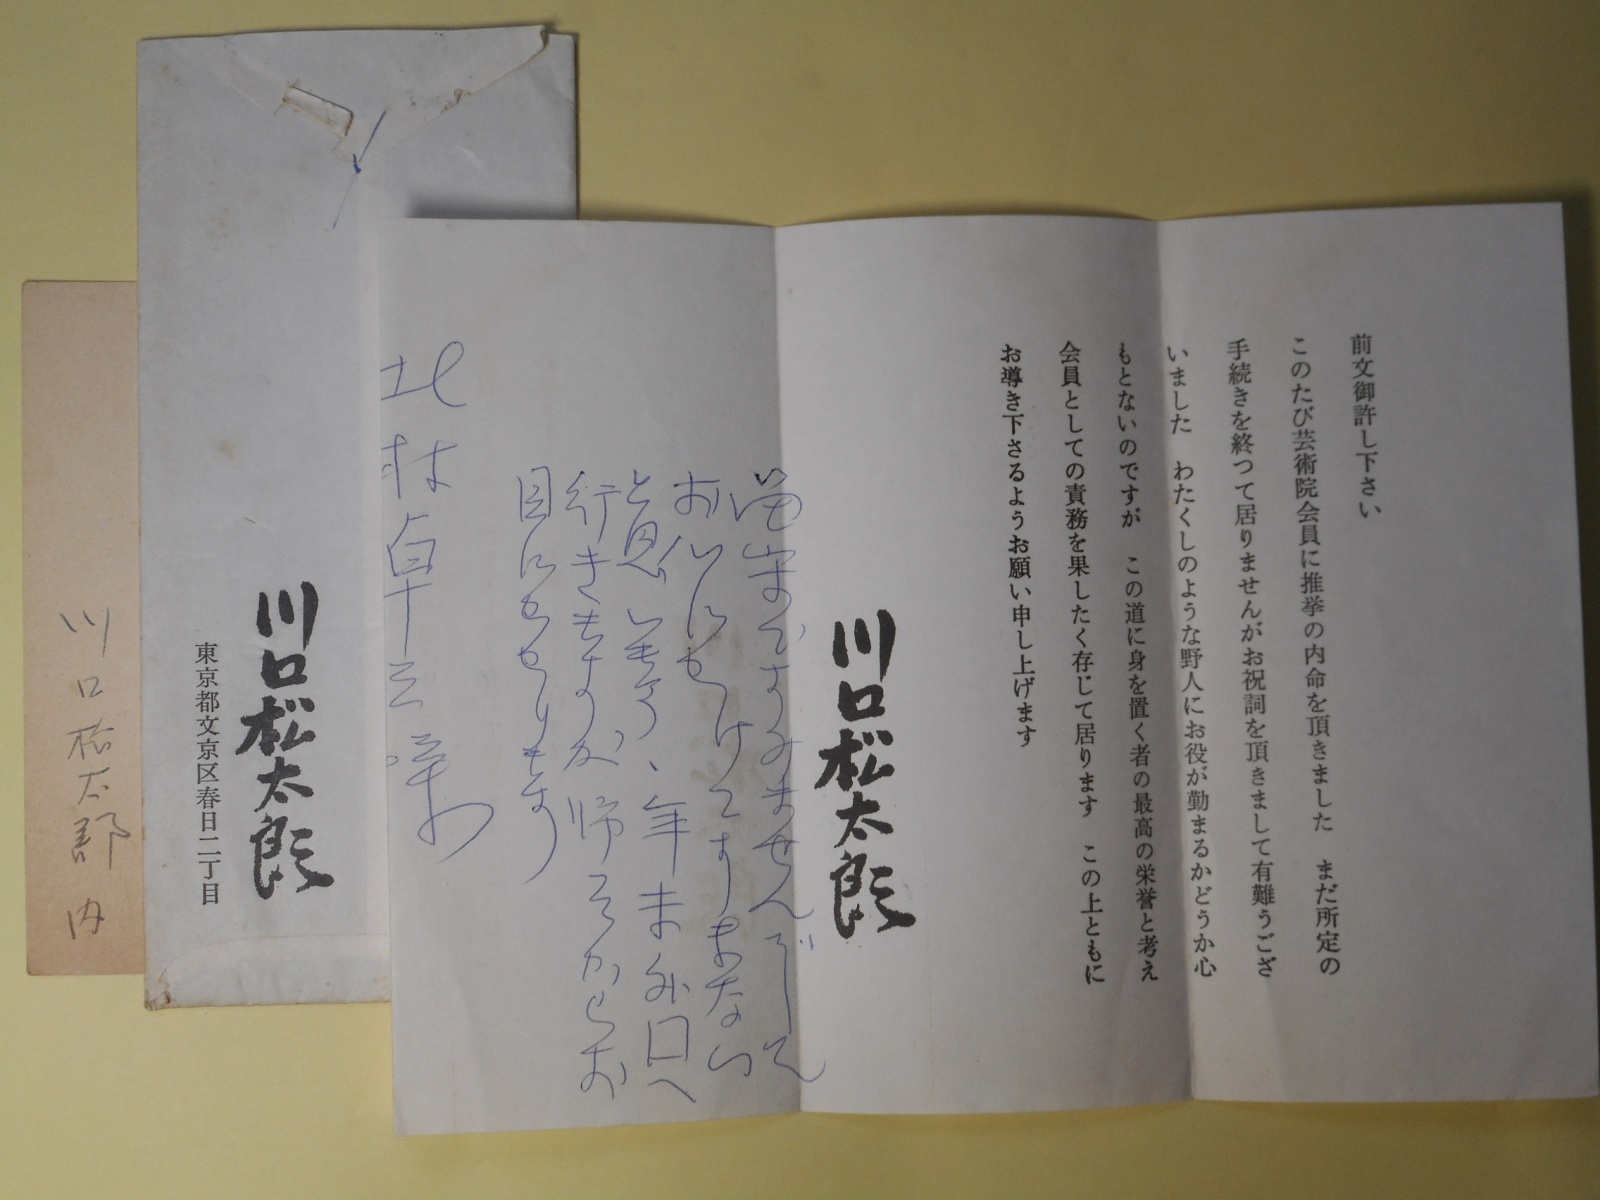 前文御許し下さい
このたび芸術院会員に推挙の内命を頂きました　まだ所定の
手続きを終つて居りませんがお祝詞を頂きまして有難うござ
いました　わたくしのような野人にお役が勤まるかどうか心
もとないのですが　この道に身を置く者の最高の栄誉と考え
会員としての責務を果したく存じて居ります　この上ともに
お導き下さるようお願い申し上げます
川口松太郎
留守ですみませんでした
お心にかけてすまない
と思います、年末外国へ
行きますが帰つてからお
目にかかります
北林
川口松太郎
東京都文京区春日二丁目
川口松太郎内